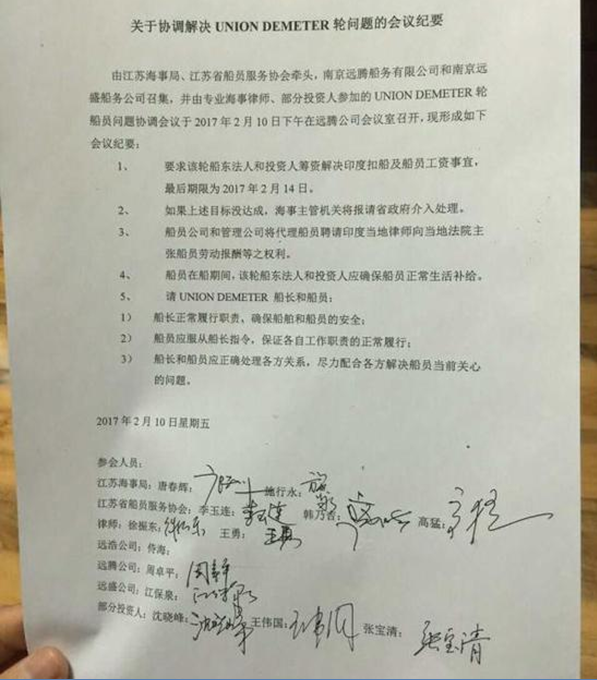 关于协调解决 UNION DEMETER 轮问题的会议纪要
由江苏海事局、江苏省船员服务协会牵头，南京远腾船务有限公司和南京远
盛船务公司召集，并由专业海事律师、部分投资人参加的 UNION DEMETER 轮
船员问题协调会议于 2017 年 2 月 10 日下午在远腾公司会议室召开，现形成如下
会议纪要：
1、 要求该轮船东法人和投资人筹资解决印度扣船及船员工资事宜，
最后期限为 2017 年 2 月 14 日。
2、 如果上述目标没达成，海事主管机关将报请省政府介入处理。
3、 船员公司和管理公司将代理船员聘请印度当地律师向当地法院主
张船员劳动报酬等之权利。
4、 船员在船期间，该轮船东法人和投资人应确保船员正常生活补给。
5、 请 UNION DEMETER 船长和船员：
1） 船长正常履行职责、确保船舶和船员的安全；
2） 船员应服从船长指令，保证各自工作职责的正常履行；
3） 船长和船员应正确处理各方关系，尽力配合各方解决船员当前关心
的问题。
2017 年 2 月 10 日星期五
参会人员：
江苏海事局：唐春辉： 施行永：
江苏省船员服务协会：李玉连： 李玉连 韩乃吉： 高猛： 高猛
律师：徐振东： 徐振东 王勇： 王勇
远浩公司：佟海：
远腾公司：周卓平：
远盛公司：江保泉：
部分投资人：沈晓峰： 沈晓峰 王伟国： 王伟国 张宝清： 张宝清